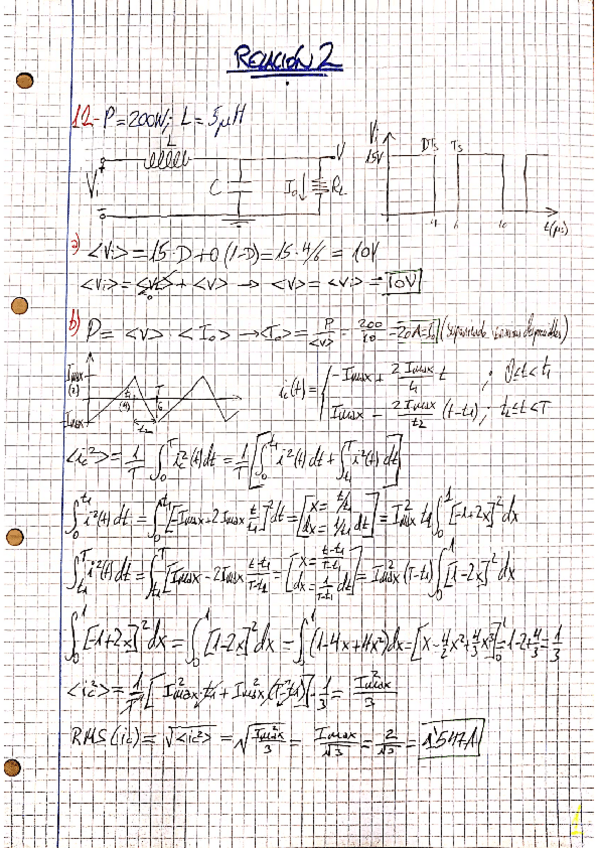 RELACIÓN 2
12- P=200W; L=5μH
L
V
Vi
C
Io
RL
Vi
15V
DTs Ts
4 6 10 t(μs)
a) <Vi> = 15·D+0(1-D) = 15·4/6 = 10V
<Vi> = <VL> + <V> → <V> = <Vi> = 10V
b) P = <V> <Io> → <Io> = P/<V> = 200/10 = 20A = Io
Imax
(2)
-Imax
t1
(4)
T
6
t2
ic(t) = { -Imax + 2Imax/t1 t ; 0≤t<t1
Imax - 2Imax/t2 (t-t1); t1≤t<T
<ic²> = 1/T ∫₀ᵀ ic²(t)dt = 1/T [∫₀^t1 i²(t)dt + ∫_t1^T i²(t)dt]
∫₀^t1 i²(t)dt = ∫₀^t1 [-Imax+2Imax t/t1]² dt = [x = t/t1 dx = 1/t1 dt] = Imax² t1 ∫₀¹ [-1+2x]² dx
∫_t1^T i²(t)dt = ∫_t1^T [Imax - 2Imax t-t1/T-t1]² = [x = t-t1/T-t1 dx = 1/T-t1 dt] = Imax² (T-t1) ∫₀¹ [1-2x]² dx
∫₀¹ [-1+2x]² dx = ∫₀¹ [1-2x]² dx = ∫₀¹ (1-4x+4x²)dx = [x - 4/2 x² + 4/3 x³]₀¹ = 1-2+4/3 = 1/3
<ic²> = 1/T [Imax² t1 + Imax² (T-t1)] · 1/3 = Imax²/3
RMS(ic) = √<ic²> = √(Imax²/3) = Imax/√3 = 2/√3 = 1'547A
1